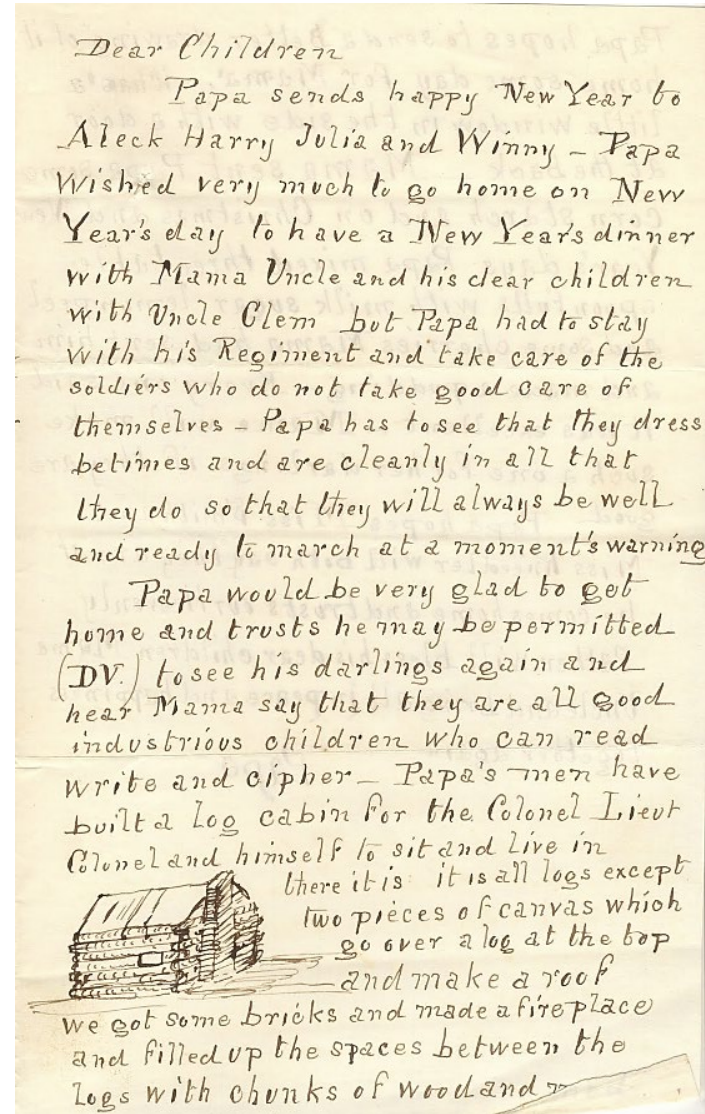 Dear Children
Papa sends happy New Year to
Aleck Harry Julia and Winny – Papa
Wished very much to go home on New
Year's day to have a New Year's dinner
with Mama Uncle and his dear children
with Uncle Clem but Papa had to stay
with his Regiment and take care of the
soldiers who do not take good care of
themselves – Papa has to see that they dress
betimes and are cleanly in all that
they do so that they will always be well
and ready to march at a moment's warning
Papa would be very glad to get
home and trusts he may be permitted
(DV.) to see his darlings again and
hear Mama say that they are all good
industrious children who can read
write and cipher – Papa's men have
built a log cabin for the Colonel Lieut
Colonel and himself to sit and live in
there it is it is all logs except
two pieces of canvas which
go over a log at the top
and make a roof
we got some bricks and made a fireplace
and filled up the spaces between the
logs with chunks of wood and